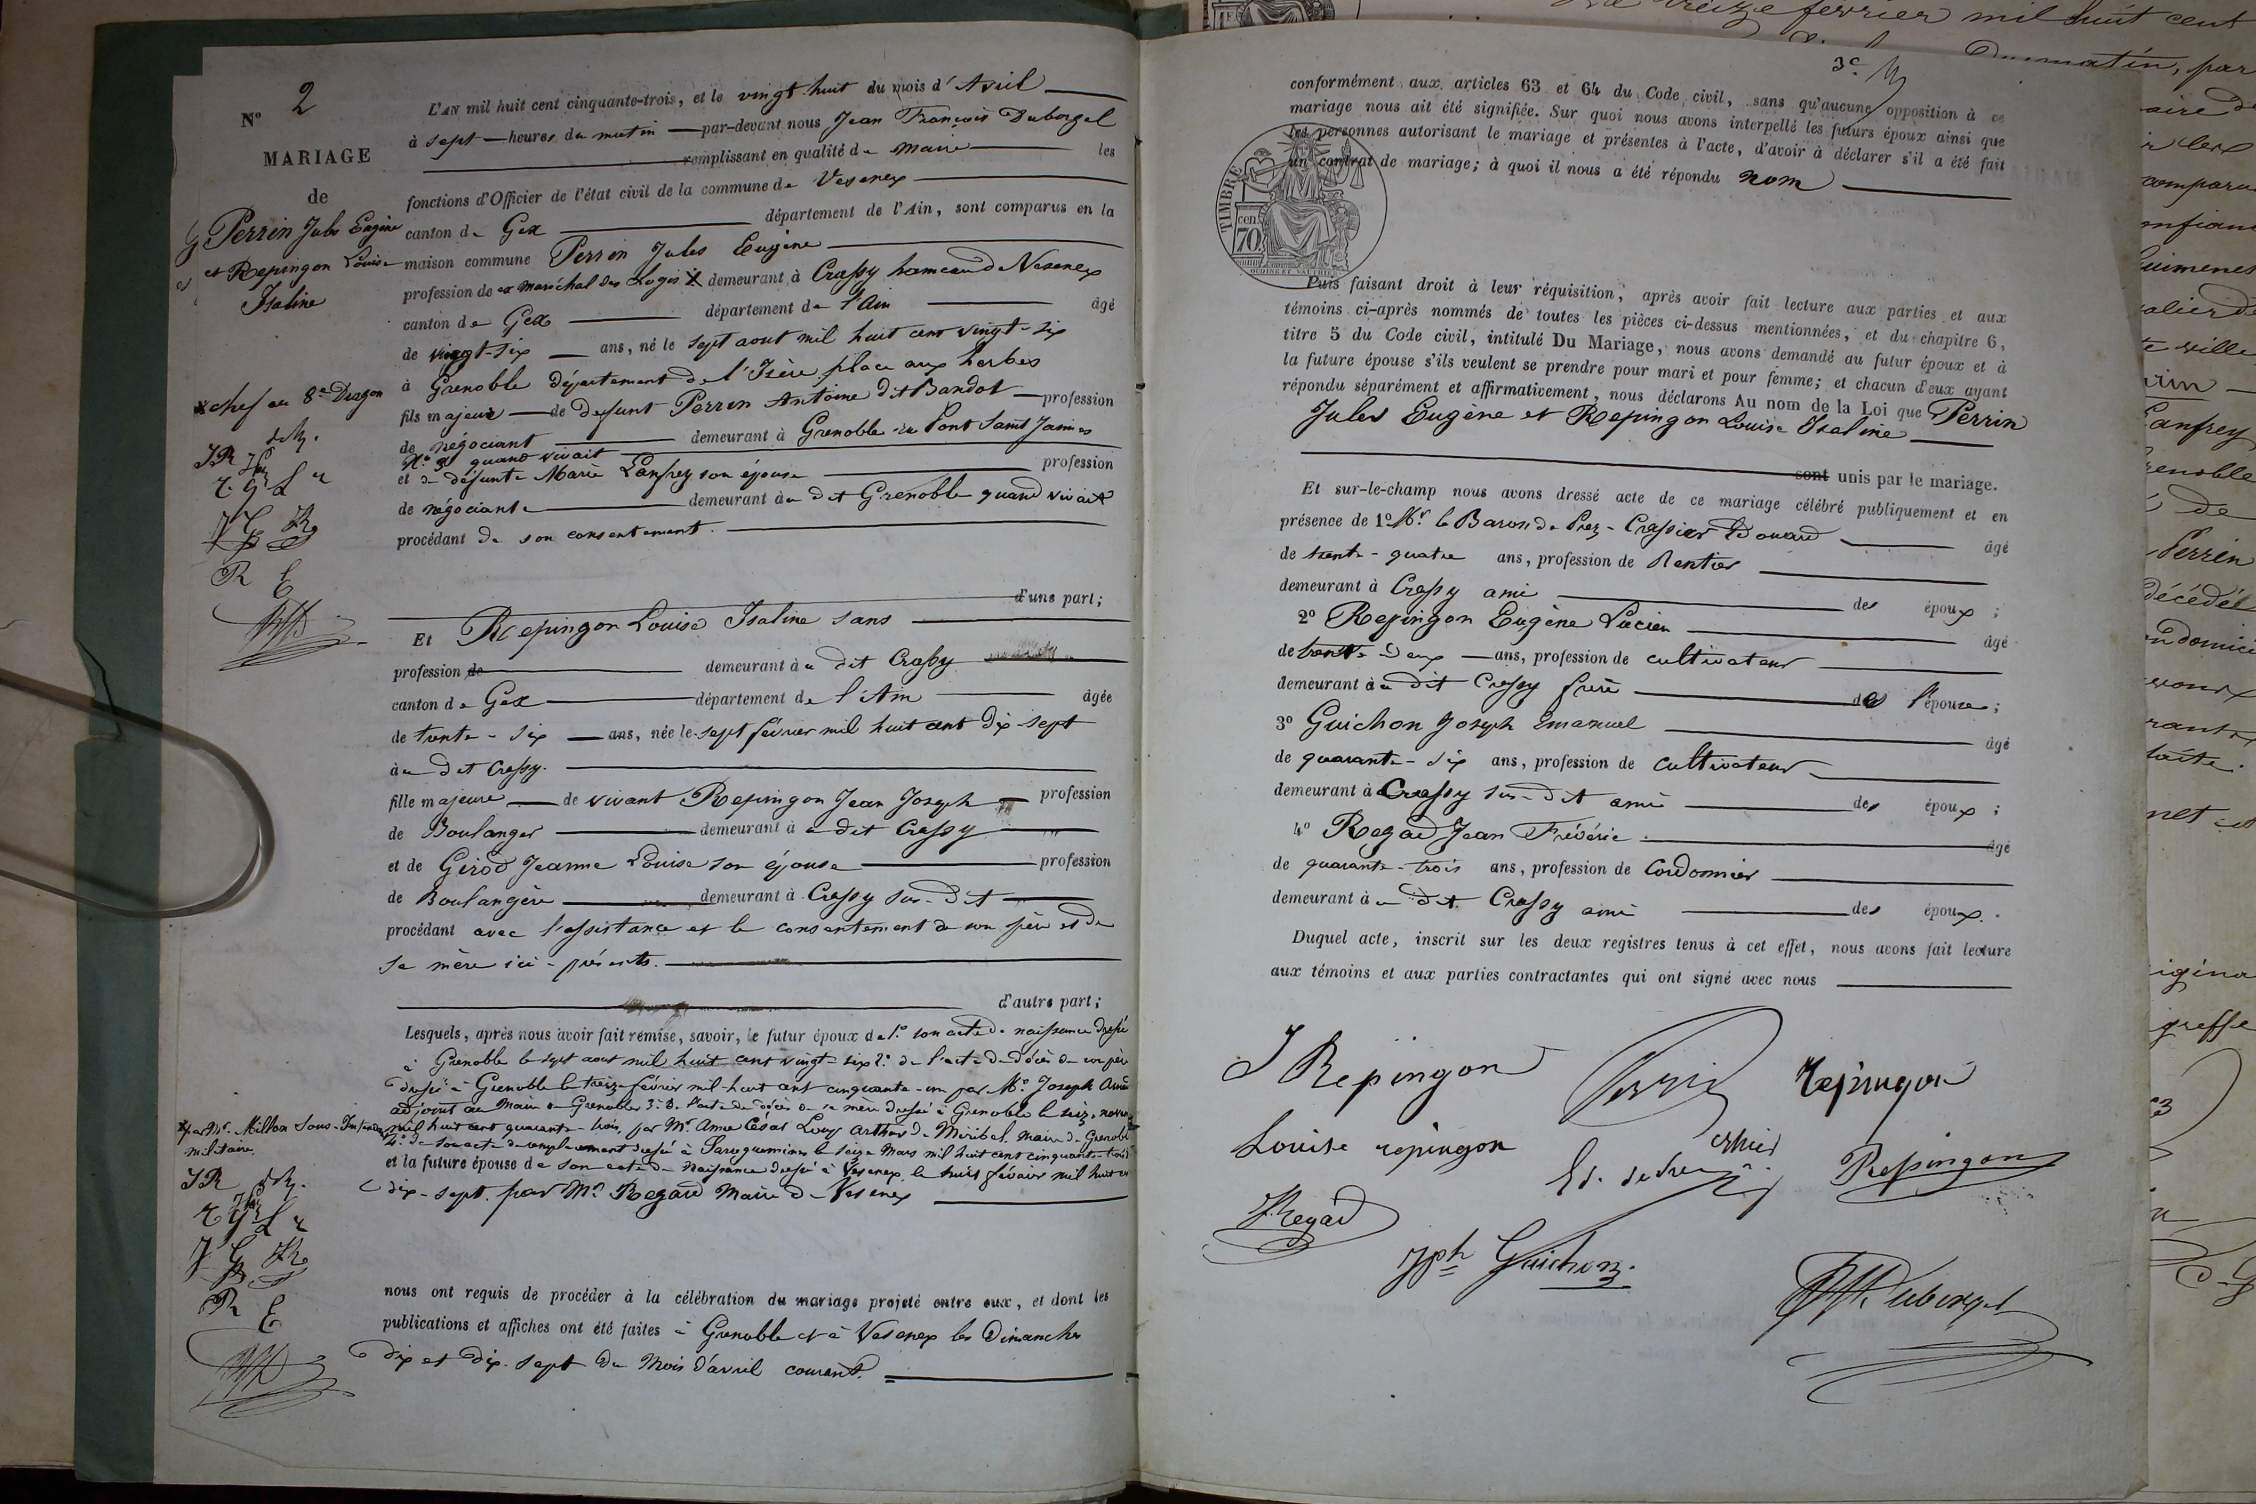 N° 2
MARIAGE
de
Perrin Jules Eugène
et Repingon Louise
Isaline
L'AN mil huit cent cinquante-trois, et le vingt-huit du mois d'Avril
à sept heures du matin par-devant nous Jean François Duborgel
remplissant en qualité de maire les
fonctions d'Officier de l'état civil de la commune de Vesenex
canton de Gex département de l'Ain, sont comparus en la
maison commune Perrin Jules Eugène
profession de ex maréchal des Logis X demeurant à Crassy hameau de Vesenex
canton de Gex département de l'Ain âgé
de vingt-six ans, né le sept aout mil huit cent vingt-six
à Grenoble département de l'Isère place aux herbes
fils majeur de defunt Perrin Antoine dit Bandot profession
de négociant demeurant à Grenoble rue Pont Saint James
N° 3 quand vivait
et de défunte Marie Lanfrey son épouse profession
de négociante demeurant à u dit Grenoble quand vivait
procédant de son consentement.
x chef au 8e Dragon
JR
R E
d'une part;
Et Repingon Louise Isaline sans
profession de demeurant à u dit Crassy
canton de Gex département de l'Ain âgée
de trente-six ans, née le sept février mil huit cent dix sept
à u dit Crassy.
fille majeure de vivant Repingon Jean Joseph profession
de Boulanger demeurant à u dit Crassy
et de Girod Jeanne Louise son épouse profession
de Boulangère demeurant à Crassy sus-dit
procédant avec l'assistance et le consentement de son père et de
sa mère ici-présents.
d'autre part;
Lesquels, après nous avoir fait remise, savoir, le futur époux de 1° son acte de naissance dressé
à Grenoble le sept aout mil huit cent vingt-six 2° de l'acte de décès de son père
dressé à Grenoble le treize février mil-huit cent cinquante-un par Mr Joseph
adjoint au Maire de Grenoble 3° de l'acte de décès de sa mère dressé à Grenoble le
mil huit cent quarante-trois, par Mr Ame César Louis Arthur de Miribel, maire de Grenoble
4° de son acte de remplacement dressé à Sarreguemines le seize Mars mil huit cent cinquante-trois
et la future épouse de son acte de naissance dressé à Vesenex le huit février mil huit cent
dix-sept par Mr Regard Maire de Vesenex
x par Mr Millon Sous-Intendant
militaire
JR
R E
nous ont requis de procéder à la célébration du mariage projeté entre eux, et dont les
publications et affiches ont été faites à Grenoble et à Vesenex les Dimanches
dix et dix-sept du Mois d'avril courant.
3e
conformément aux articles 63 et 64 du Code civil, sans qu'aucune opposition à ce
mariage nous ait été signifiée. Sur quoi nous avons interpellé les futurs époux ainsi que
les personnes autorisant le mariage et présentes à l'acte, d'avoir à déclarer s'il a été fait
un contrat de mariage; à quoi il nous a été répondu nom
TIMBRE
70 cen.
Puis faisant droit à leur réquisition, après avoir fait lecture aux parties et aux
témoins ci-après nommés de toutes les pièces ci-dessus mentionnées, et du chapitre 6,
titre 5 du Code civil, intitulé Du Mariage, nous avons demandé au futur époux et à
la future épouse s'ils veulent se prendre pour mari et pour femme; et chacun d'eux ayant
répondu séparément et affirmativement, nous déclarons Au nom de la Loi que Perrin
Jules Eugène et Repingon Louise Isaline
sont unis par le mariage.
Et sur-le-champ nous avons dressé acte de ce mariage célébré publiquement et en
présence de 1° Mr le Baron de Prez-Crassier Edouard âgé
de trente-quatre ans, profession de Rentier
demeurant à Crassy ami des époux ;
2° Repingon Eugène Lucien âgé
de trente-deux ans, profession de cultivateur
demeurant à u dit Crassy frère de l'épouse ;
3° Guichon Joseph Emanuel âgé
de quarante-six ans, profession de cultivateur
demeurant à Crassy sus-dit ami des époux ;
4° Regard Jean Frédéric âgé
de quarante-trois ans, profession de Cordonnier
demeurant à u dit Crassy ami des époux.
Duquel acte, inscrit sur les deux registres tenus à cet effet, nous avons fait lecture
aux témoins et aux parties contractantes qui ont signé avec nous
J Repingon Perrin Repingon
Louise repingon
Repingon
Regard
Jph Guichon
Duborgel